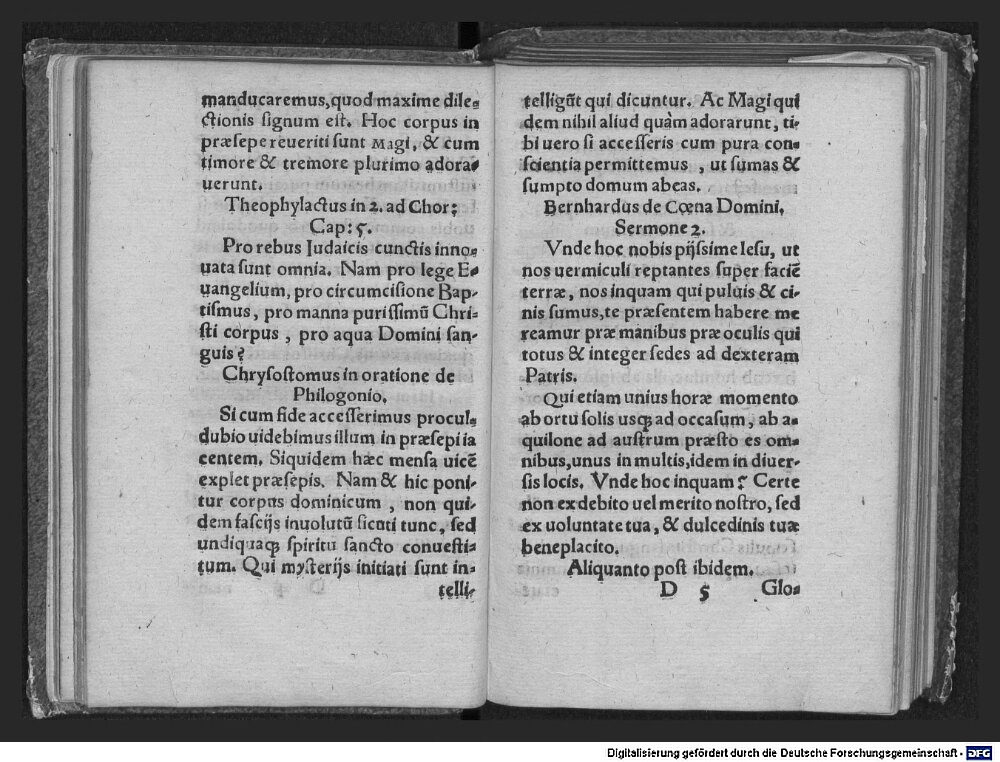 manducaremus,quod maxime dile-
ctionis signum est. Hoc corpus in
præsepe reueriti sunt Magi, & cum
timore & tremore plurimo adora-
uerunt.
Theophylactus in 2. ad Chor:
Cap: 5.
Pro rebus Judaicis cunctis inno-
uata sunt omnia. Nam pro lege E-
uangelium, pro circumcisione Bap-
tismus, pro manna purissimũ Chri-
sti corpus , pro aqua Domini san-
guis?
Chrysostomus in oratione de
Philogonio.
Si cum fide accesserimus procul-
dubio uidebimus illum in præsepi ia
centem. Siquidem hæc mensa uicẽ
explet præsepis. Nam & hic poni-
tur corpus dominicum , non qui-
dem fascijs inuolutũ sicuti tunc, sed
undiquaq; spiritu sancto conuesti-
tum. Qui mysterijs initiati sunt in-
telli-
telligũt qui dicuntur. Ac Magi qui
dem nihil aliud quàm adorarunt, ti-
bi uero si accesseris cum pura con-
scientia permittemus , ut sumas &
sumpto domum abeas.
Bernhardus de Cœna Domini,
Sermone 2.
Vnde hoc nobis pijssime Iesu, ut
nos uermiculi reptantes super faciẽ
terræ, nos inquam qui puluis & ci-
nis sumus,te præsentem habere me
reamur præ manibus præ oculis qui
totus & integer sedes ad dexteram
Patris.
Qui etiam unius horæ momento
ab ortu solis usq; ad occasum, ab a-
quilone ad austrum præsto es om-
nibus,unus in multis,idem in diuer-
sis locis. Vnde hoc inquam? Certe
non ex debito uel merito nostro, sed
ex uoluntate tua, & dulcedinis tuæ
beneplacito.
Aliquanto post ibidem.
D 5 Glo-
Digitalisierung gefördert durch die Deutsche Forschungsgemeinschaft - DFG